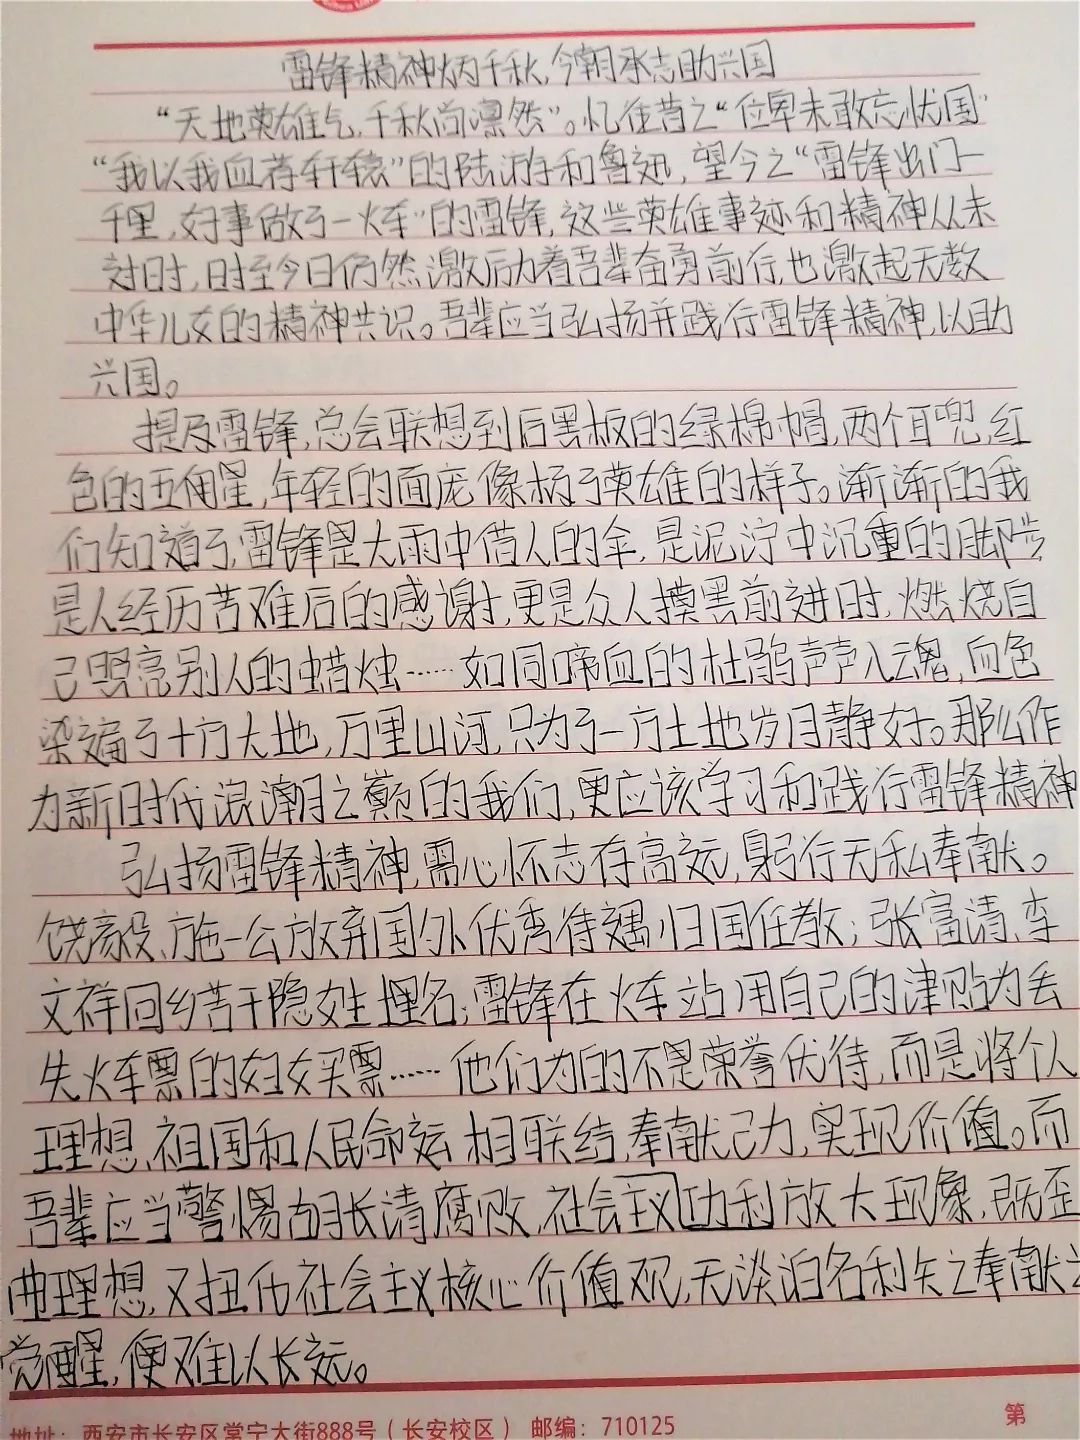 雷锋精神炳千秋,今朝承志助兴国
“天地英雄气,千秋尚凛然”。忆往昔之“位卑未敢忘忧国”
“我以我血荐轩辕”的陆游和鲁迅,望今之“雷锋出门一
千里,好事做了一火车”的雷锋,这些英雄事迹和精神从未
过时,时至今日仍然激励着吾辈奋勇前行,也激起无数
中华儿女的精神共识。吾辈应当弘扬并践行雷锋精神,以助
兴国。
提及雷锋,总会联想到后黑板的绿棉帽,两个耳兜,红
色的五角星,年轻的面庞像极了英雄的样子。渐渐的我
们知道了,雷锋是大雨中借人的伞,是泥泞中沉重的脚步,
是人经历苦难后的感谢,更是众人摸黑前进时,燃烧自
己照亮别人的蜡烛……如同啼血的杜鹃声声入魂,血色
染遍了十方大地,万里山河,只为了一方土地岁月静好。那么作
为新时代浪潮之巅的我们,更应该学习和践行雷锋精神
弘扬雷锋精神,需心怀志存高远,躬行无私奉献。
饶毅、施一公放弃国外优秀待遇归国任教;张富清、李
文祥回乡苦干隐姓埋名;雷锋在火车站用自己的津贴为丢
失火车票的妇女买票……他们为的不是荣誉优待,而是将个人
理想、祖国和人民命运相联结,奉献己力,实现价值。而
吾辈应当警惕胡长清腐败,社会主义功利放大现象,既歪
曲理想,又扭伤社会主义核心价值观,无淡泊名利矢之奉献之
觉醒,便难以长远。
地址:西安市长安区常宁大街888号(长安校区) 邮编:710125
第